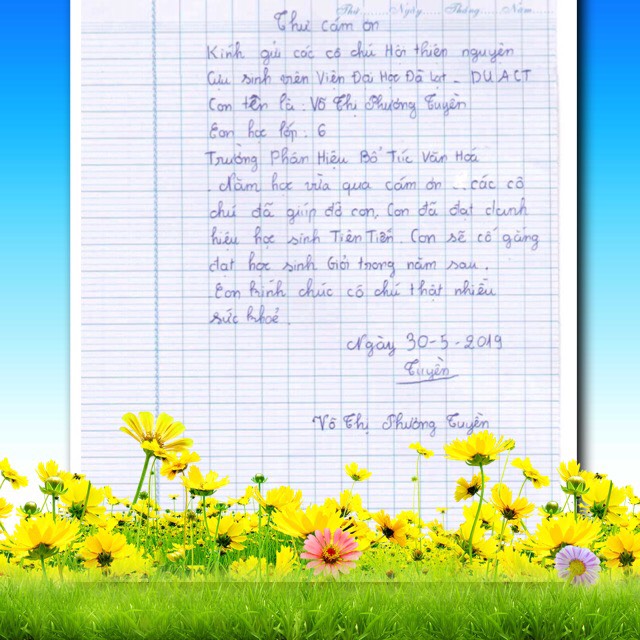 Thứ.......Ngày.......Tháng.......Năm.......
Thư cám ơn
Kính gửi các cô chú Hội thiện nguyện
Cựu sinh viên Viện Đại Học Đà Lạt - DUACT
Con tên là : Võ Thị Phương Tuyền
Con học lớp : 6
Trường Phân Hiệu Bổ Túc Văn Hoá
Năm học vừa qua cám ơn các cô
chú đã giúp đỡ con. Con đã đạt danh
hiêu học sinh Tiên Tiến. Con sẽ cố gắng
đạt học sinh Giỏi trong năm sau.
Con kính chúc cô chú thật nhiều
sức khoẻ.
Ngày 30-5-2019
Tuyền
Võ Thị Phương Tuyền